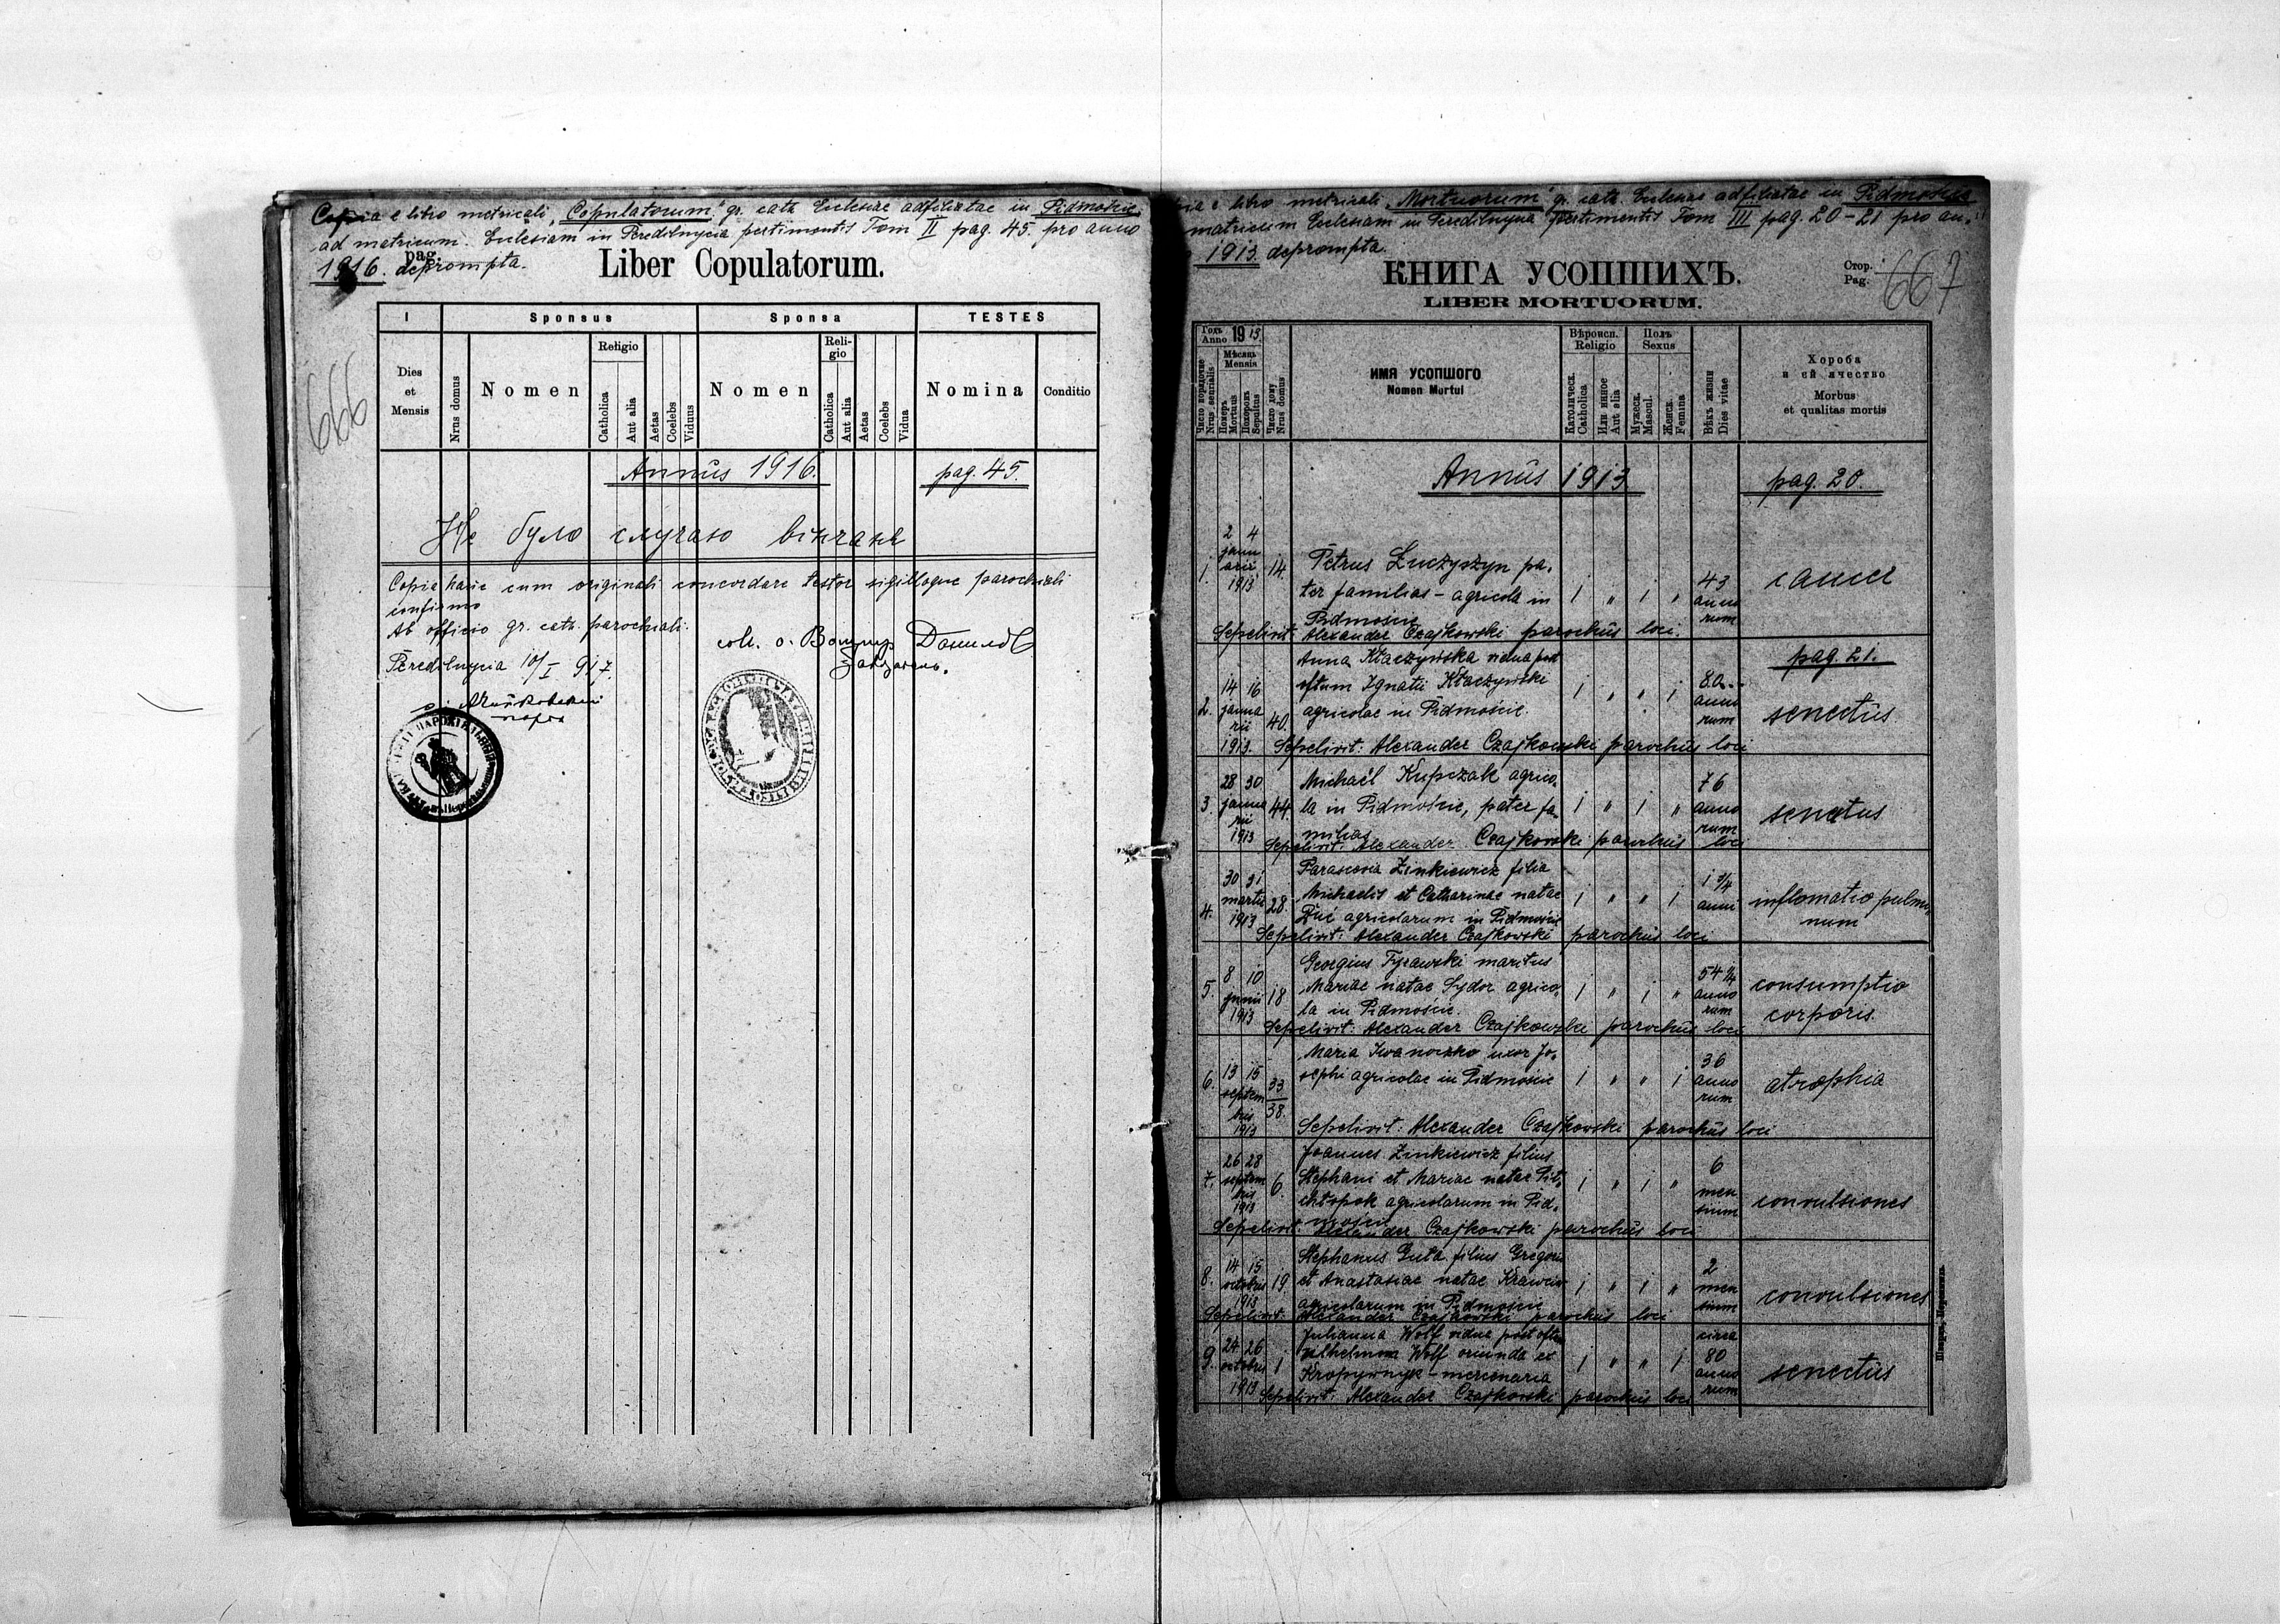 Copia e libro metricali „Copulatorum" gr. cath. Ecclesiae adfiliatae in Pidmoście
ad matricem Ecclesiam in Peredilnycia pertinentis Tom II pag. 45. pro anno
1916. deprompta.
pag.
Liber Copulatorum.
666
I
Sponsus
Sponsa
TESTES
Dies et Mensis
Nrus domus
Nomen
Religio
Catholica
Aut alia
Aetas
Coelebs
Viduus
Nomen
Religio
Catholica
Aut alia
Aetas
Coelebs
Vidua
Nomina
Conditio
Annus 1916.
pag. 45.
Не було случаю вінчань
Copia hanc cum originali concordare testor sigilloque parochiali
confirmo
Ab officio gr. cath. parochiali.
Peredilnycia 10/I 917.
coll. о. Данилів
 libro metricali „Mortuorum" gr. cath. Ecclesiae adfiliatae in Pidmoście
matricem Ecclesiam in Peredilnycia pertinentis Tom III pag. 20-21 pro an.
1913. deprompta.
КНИГА УСОПШИХЪ.
LIBER MORTUORUM.
Стор.
Pag.
667
Годъ
Anno 1913.
Мѣсяць
Mensis
Число порядкове
Nrus serialis
Померъ
Mortuus
Похоронъ
Sepultus
Число дому
Nrus domus
ИМЯ УСОПШОГО
Nomen Mortui
Вѣроисп.
Religio
Католическ.
Catholica
Или инное
Aut alia
Полъ
Sexus
Мужеск.
Mascul.
Женск.
Femina
Вѣкъ жизни
Dies vitae
Хороба
и ей ячество
Morbus
et qualitas mortis
Annus 1913
pag. 20.
1. 2 4 januarii 1913 14. Petrus Łuczyszyn pa-
ter familias - agricola in
Pidmoście 1 „ 1 „ 43 annorum cancer
Sepelivit: Alexander Czajkowski parochus loci.
pag. 21.
2. 14 16 januarii 1913. 40. Anna Kłaczyńska vidua post
oftum Ignatii Kłaczyński
agricolae in Pidmoście. 1 „ „ 1 80 annorum senectus
Sepelivit: Alexander Czajkowski parochus loci
3. 28 30 januarii 1913 44. Michaël Kupczak agrico-
la in Pidmoście, pater fa-
milias 1 „ 1 „ 76 annorum senectus
Sepelivit: Alexander Czajkowski parochus loci
4. 30 31 martii 1913 28. Parascevia Zinkiewicz filia
Michaelis et Catharinae natae
Duć agricolarum in Pidmoście 1 „ „ 1 1 3/4 anni inflamatio pulmo-
num
Sepelivit: Alexander Czajkowski parochus loci
5. 8 10 junii 1913 18 Georgius Tyrawski maritus
Mariae natae Sydor agrico-
la in Pidmoście. 1 „ 1 „ 54 1/4 annorum consumptio
corporis.
Sepelivit: Alexander Czajkowski parochus loci
6. 13 15 septembris 1913 33/38. Maria Iwanoczko uxor Jo-
sephi agricolae in Pidmoście 1 „ „ 1 36 annorum atrophia
Sepelivit: Alexander Czajkowski parochus loci
7. 26 28 septembris 1913 6. Joannes Zinkiewicz filius
Stephani et Mariae natae
agricolarum in Pid-
moście 1 „ 1 „ 6 mensium convulsiones
Sepelivit: Alexander Czajkowski parochus loci
8. 14 15 octobris 1913 19 Stephanus Guta filius Gregorii
et Anastasiae natae
agricolarum in Pidmoście 1 „ 1 „ 2 mensium convulsiones
Sepelivit: Alexander Czajkowski parochus loci
9. 24 26 octobris 1913 1 Julianna Wolf vidua post oftum
Wilhelmum Wolf oriunda ex
Kropywnyk - mercenaria 1 „ „ 1 circa 80 annorum senectus
Sepelivit: Alexander Czajkowski parochus loci